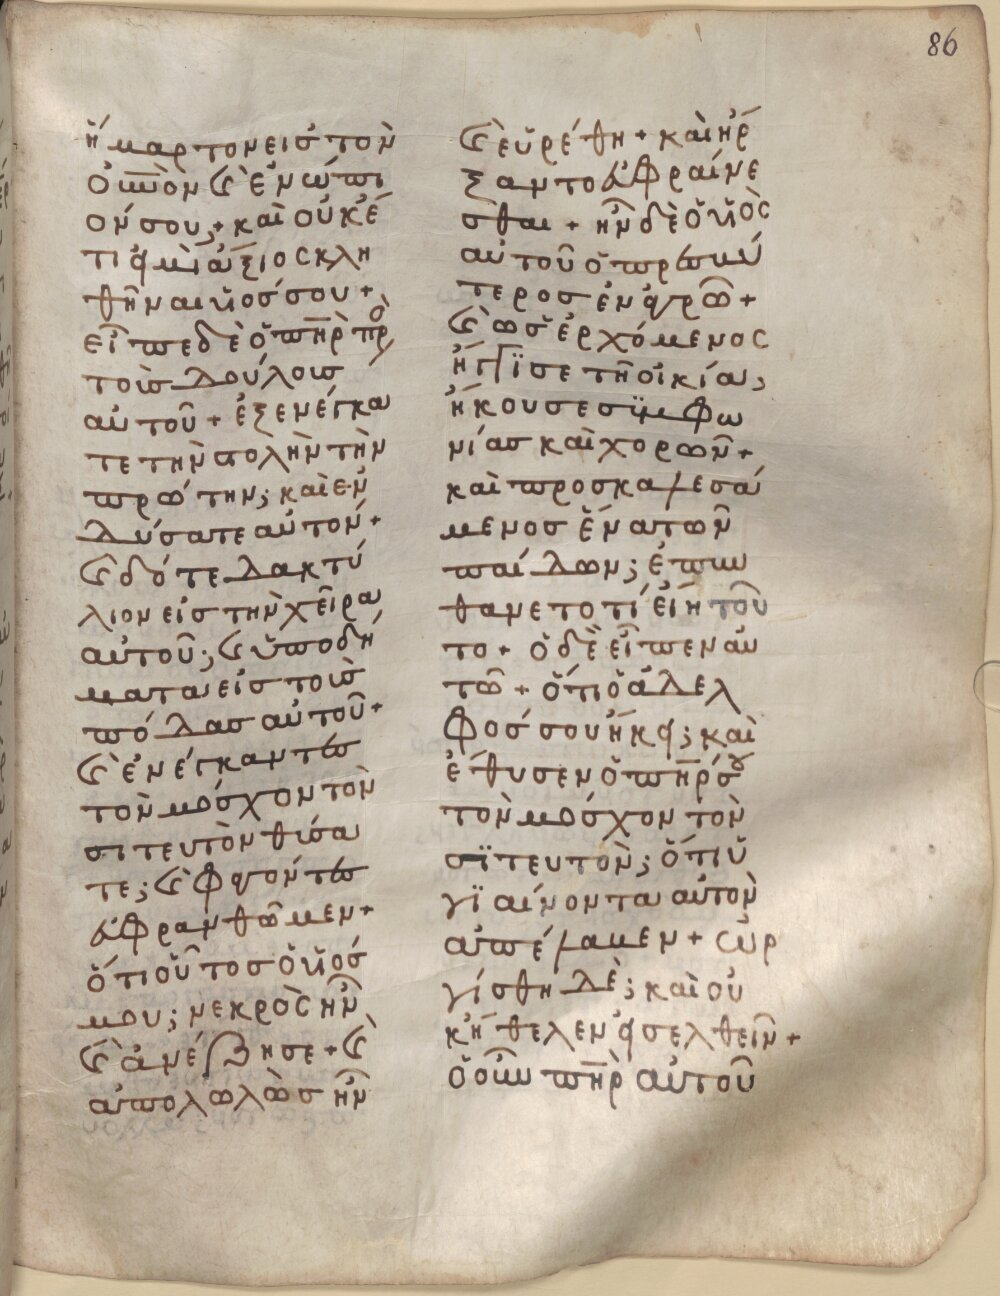 86
ἥμαρτον εἰς τὸν
οὐ̅νὸν καὶ ἐνώπι
όν σου, + καὶ οὐκέ
τι εἰμὶ ἄξιος κλη
θῆναι υἱός σου +
εἶπε δὲ ὁ π̅ηρ πρὸ
τοὺς δούλους
αὐτοῦ + ἐξενέγκα
τε τὴν στολὴν τὴν
πρώτην; καὶ ἐν
δύσατε αὐτόν +
καὶ δότε δακτύ
λιον εἰς τὴν χεῖρα
αὐτοῦ; καὶ ὑποδή
ματα εἰς τοὺς
πόδας αὐτοῦ +
καὶ ἐνέγκαντες
τὸν μόσχον τὸν
σιτευτὸν θύσα
τε; καὶ φαγόντες
εὐφρανθῶμεν +
ὅτι οὗτος ὁ υἱός
μου; νεκρὸς ἦν
καὶ ἀνέζησε + καὶ
ἀπολωλὼς ἦν
καὶ εὑρέθη + καὶ ἤρ
ξαντο εὐφραίνε
σθαι + ἦν δὲ ὁ υἱὸς
αὐτοῦ ὁ πρεσβύ
τερος ἐν ἀγρῶ +
καὶ ὡς ἐρχόμενος
ἤγγϊσε τῆ οἰκία;
ἤκουσε συμφω
νίας καὶ χορῶν +
καὶ προσκαλεσά
μενος ἕνα τῶν
παίδων; ἐπυν
θάνετο τί εἴη τοῦ
το + ὁ δὲ εἶπεν αὐ
τῶ + ὅτι ὁ ἀδελ
φός σου ἥκει; καὶ
ἔθυσεν ὁ π̅ηρ σου
τὸν μόσχον τὸν
σϊτευτὸν; ὅτι ὑ
γϊαίνοντα αὐτὸν
ἀπέλαβεν + ὠρ
γίσθη δὲ; καὶ οὐ
κ ἤθελεν εἰσελθεῖν +
ὁ οὖν π̅ηρ αὐτοῦ